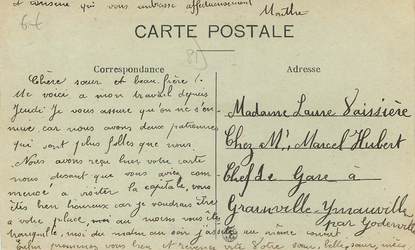 et cousine qui vous embrasse affectueusement
Marthe
CARTE POSTALE
Correspondance
Adresse
Chère sœur et beau frère !
Me voici a mon travail depuis
Jeudi Je vous assure qu'on ne s'en
nuie car nous avons deux patronnes
qui sont plus folles que nous.
Nous avons reçu hier votre carte
nous disant que vous aviez com
mencé a visiter la capitale, vous
êtes bien heureux car je voudrais être
a votre place, moi au moins vous êtes
tranquille, moi du matin au soir
Madame Laure Vaissière
Chez Mr Marcel Hubert
Chef de Gare à
Grainville-Ymauville
par Goderville